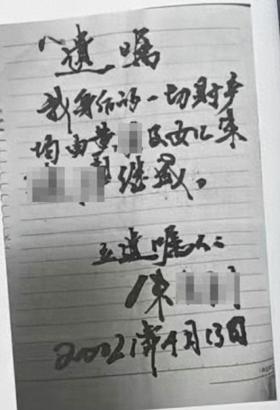 遗嘱
我身后的一切财产
均由黄 及女儿朱
继承。
立遗嘱人:
朱
2002年4月13日